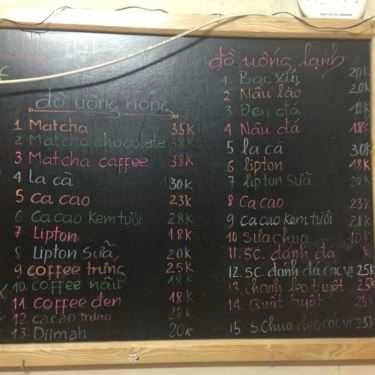 đồ uống nóng
1 Matcha 35K
2 Matcha chocolate 38K
3 Matcha caffee 38K
4 la cà 30K
5 ca cao 23K
6 ca cao kem tươi 28K
7 Lipton 18K
8 Lipton Sữa 20K
9 coffee trứng 25K
10 coffee nâu 18K
11 coffee đen 18K
12 cacao trứng
13 Dilmah 20K
đồ uống lạnh
1 Bạc xỉu 20K
2 Nâu lào 20K
3 Đen đá
4 Nâu đá 18K
5 la cà 30K
6 lipton 18K
7 lipton sữa 20K
8 Ca cao 23K
9 ca cao kem tươi 28K
10 Sữa chua
11. SC. đánh đá
12. SC. đánh đá ca cao 25K
13. chanh leo tuyết 25K
14 Quất tuyết 25K
15 S.chua 25K